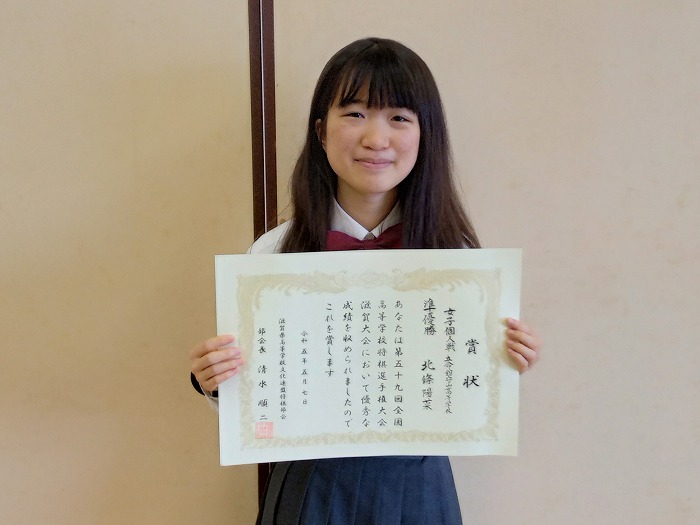 賞状
女子個人戦 立命館守山高等学校
準優勝 北條陽菜
あなたは第五十九回全国
高等学校将棋選手権大会
滋賀大会において優秀な
成績を収められましたので
これを賞します
令和五年五月七日
滋賀県高等学校文化連盟将棋部会
部会長 清水順二